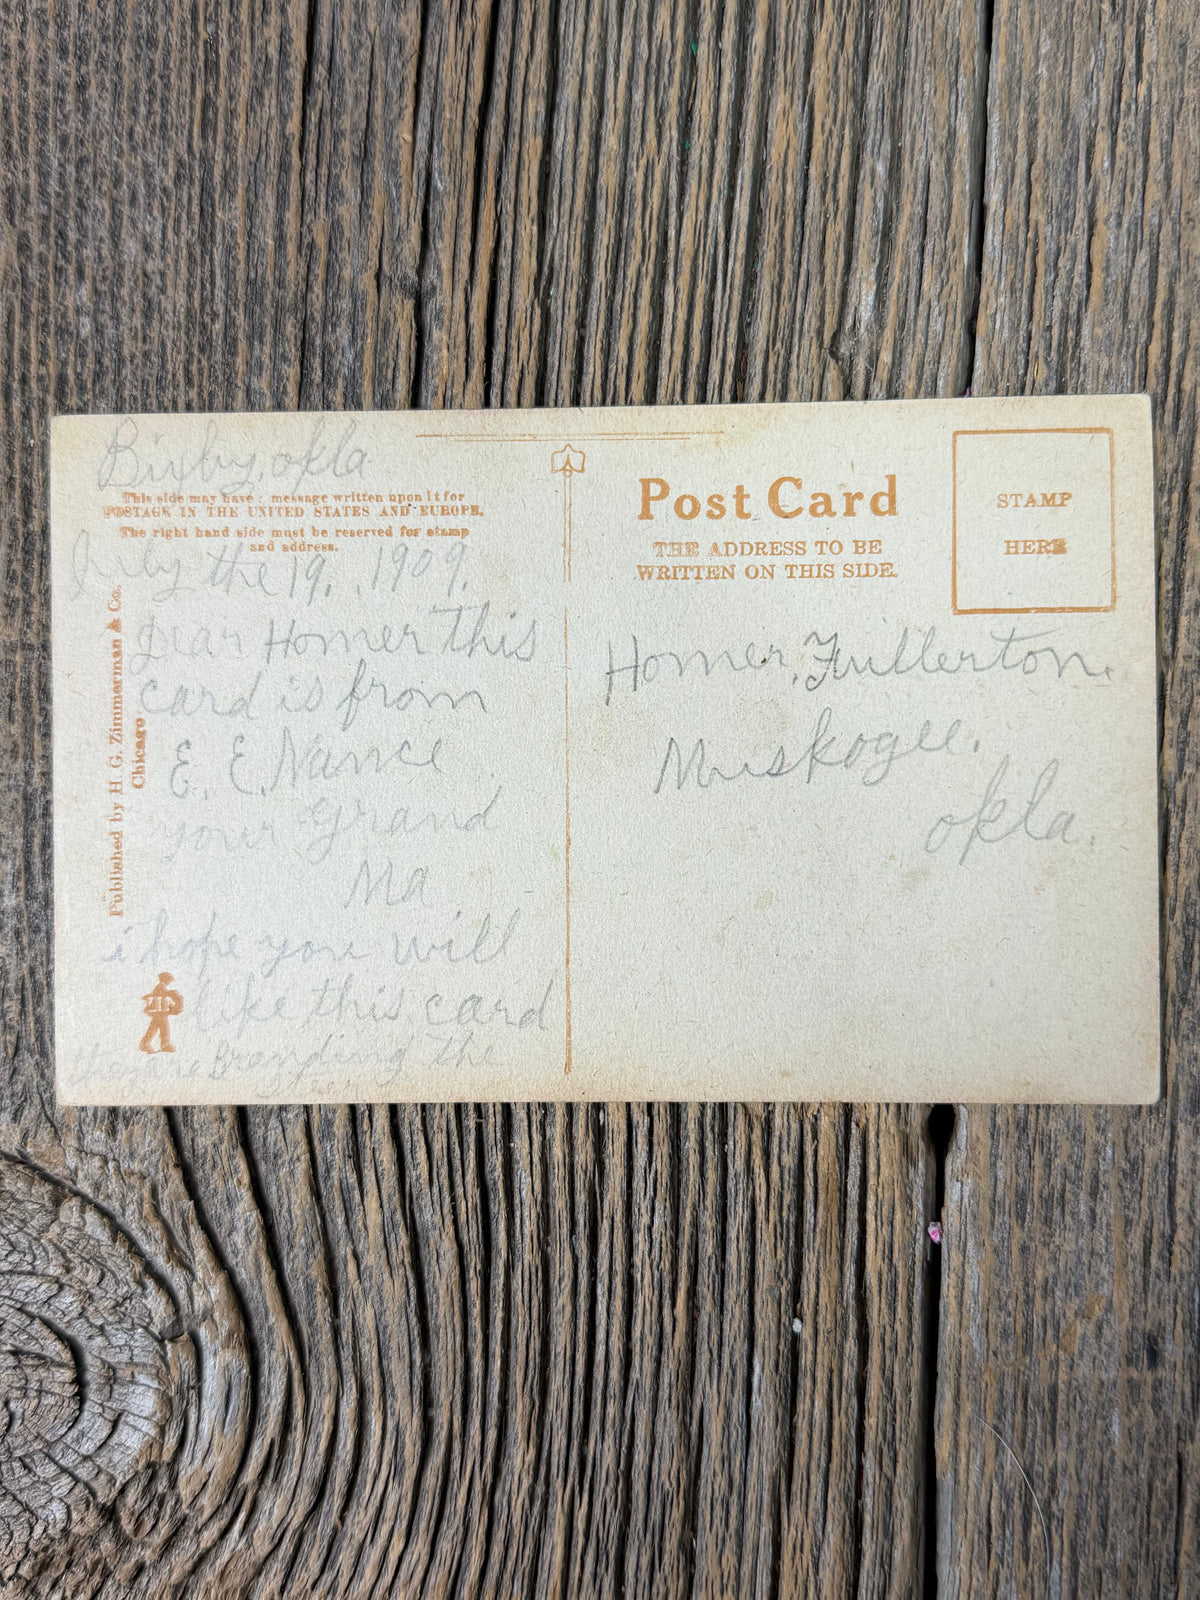 Bixby, okla
This side may have : message written upon it for
POSTAGE IN THE UNITED STATES AND EUROPE.
The right hand side must be reserved for stamp
and address.
July the 19, 1909.
Dear Homer this
card is from
E. E. Nance
your Grand
Ma
i hope you will
like this card
they are Branding the
Published by H. G. Zimmerman & Co.
Chicago
ZIM
Post Card
THE ADDRESS TO BE
WRITTEN ON THIS SIDE.
STAMP
HERE
Homer, Fullerton.
Muskogee,
okla.